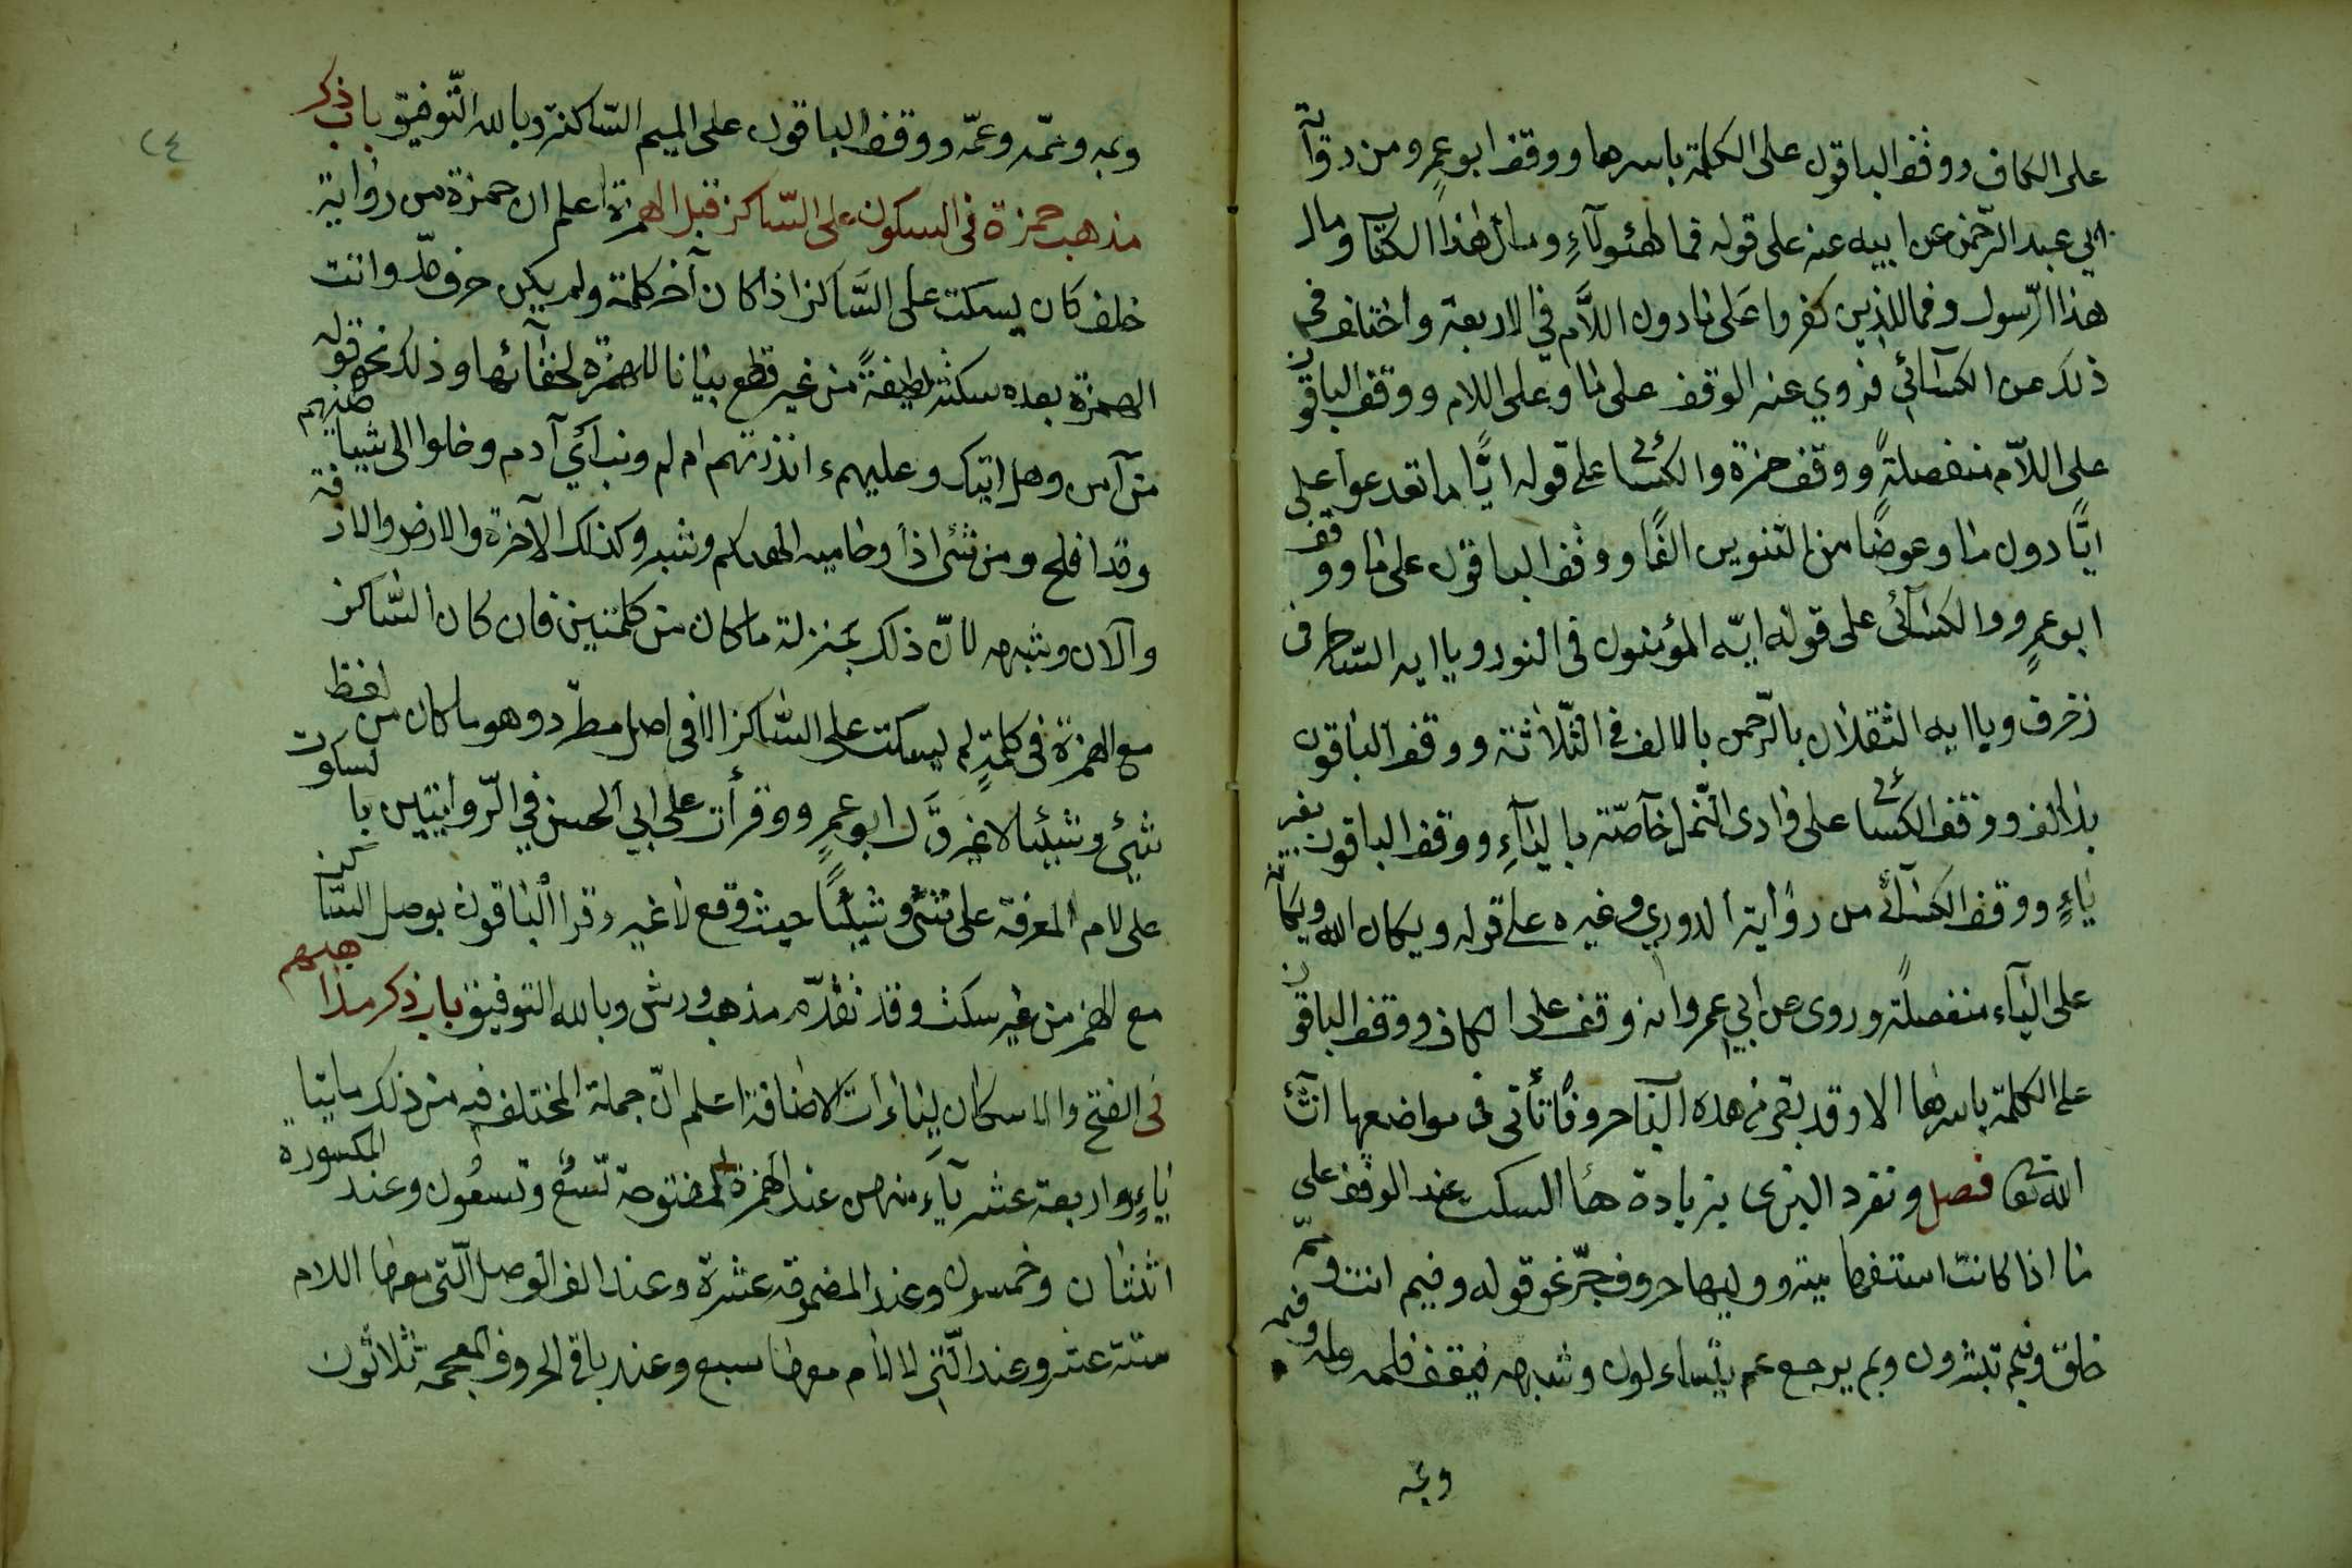 على الكاف ووقف الباقون على الكلمة باسرها ووقف ابو عمرو من رواية
ابي عبد الرحمن عن ابيه عنه على قوله فما لهٰؤلآءِ ومال هٰذا الكتاب ومال
هذا الرّسول وفمال الذين كفروا عَلى ما دون اللاَّم في الاربعة واختلف في
ذلك عن الكسآئي فروي عنه الوقف على ما وعلى اللام ووقف الباقون
على اللاّم منفصلةً ووقف حمزة والكسائي على قوله ايًّا ما تدعوا على
ايًّا دون ما وعوضًا من التنوين الفًا ووقف الباقون على ما ووقف
ابو عمرٍو والكسآئى على قوله ايّه المؤمنون فى النور ويا ايه السّاحر فى
زخرف ويا ايه الثقلان بالرّحمن بالالف في الثّلاثة ووقف الباقون
بغير الف ووقف الكسائي على وادى النّمل خآصّة بالياءِ ووقف الباقون بغير
ياءٍ ووقف الكسآئى من رواية الدوري وغيره على قوله ويكان الله ويكانه
على اليآء منفصلةً وروى عن ابي عمرو انه وقف على الكاف ووقف الباقون
على الكلمة باسرها الا وقد بقى من هذه الباب حروفٌ تأتى فى مواضعها انشآء
الله تعا فصل وتفرد البزى بزيادة هآ السكت عند الوقف على
ما اذا كانت استفهامية ووليها حروف جرّ نحو قوله وفيم انت وممّ
خلق وفبم تبشرون وبم يرجع عم يتساءلون وشبهه فيقف فلمه ولمه وفيمه
وبمه
وبمه وممّه وعمّه ووقف الباقون على الميم السّاكنة وبالله التّوفيق باب ذكر
مذهب حمزة فى السكون على السّاكن قبل الهمزة اعلم ان حمزة من رواية
خلف كان يسكت على السَّاكن اذا كان آخر كلمة ولم يكن حرف مدّ واتت
الهمزة بعده سكتة لطيفةً من غير قطع بيانا للهمزة لخفآئها وذلك نحو قوله
من آمن وهل اتيك وعليهمء انذرتهم ام لم ونبأ ابني آدم وخلوا الى شياطينهم
وقد افلح ومن شئ اذ وحامية الهٰيكم وشبه وكذلك الآخرة والارض والازفة
والآن وشبهه لانّ ذلك بمنزلة ما كان من كلمتين فان كان السّاكن
مع الهمزة فى كلمةٍ لم يسكت على السّاكن الا فى اصل مطّرد وهو ما كان من لفظ
شيئ وشيئا لا غير قَالَ ابو عمرٍو وقرأت على ابي الحسن في الرّوايتين بالسكوت
على لام المعرفة على شئ وشيئًا حيث وقع لا غير وقرا الباقون بوصل السّاكن
مع الهمز من غير سكت وقد تقدّم مذهب ورش وبالله التوفيق باب ذكر مذاهبهم
فى الفتح والاسكان لياءات الاضافة اعلم انّ جملة المختلف فيه من ذلك مايتا
ياءٍ واربعة عشر يآء منهن عند الهمزة المفتوحة تسعٌ وتسعُون وعند المكسورة
اثنتان وخمسون وعند المضمومة عشرة وعند الف الوصل آلتى معها اللام
ستة عشر وعند الّتى لا لام معها سبع وعند باقى الحروف المعجمة ثلاثون
٢٤